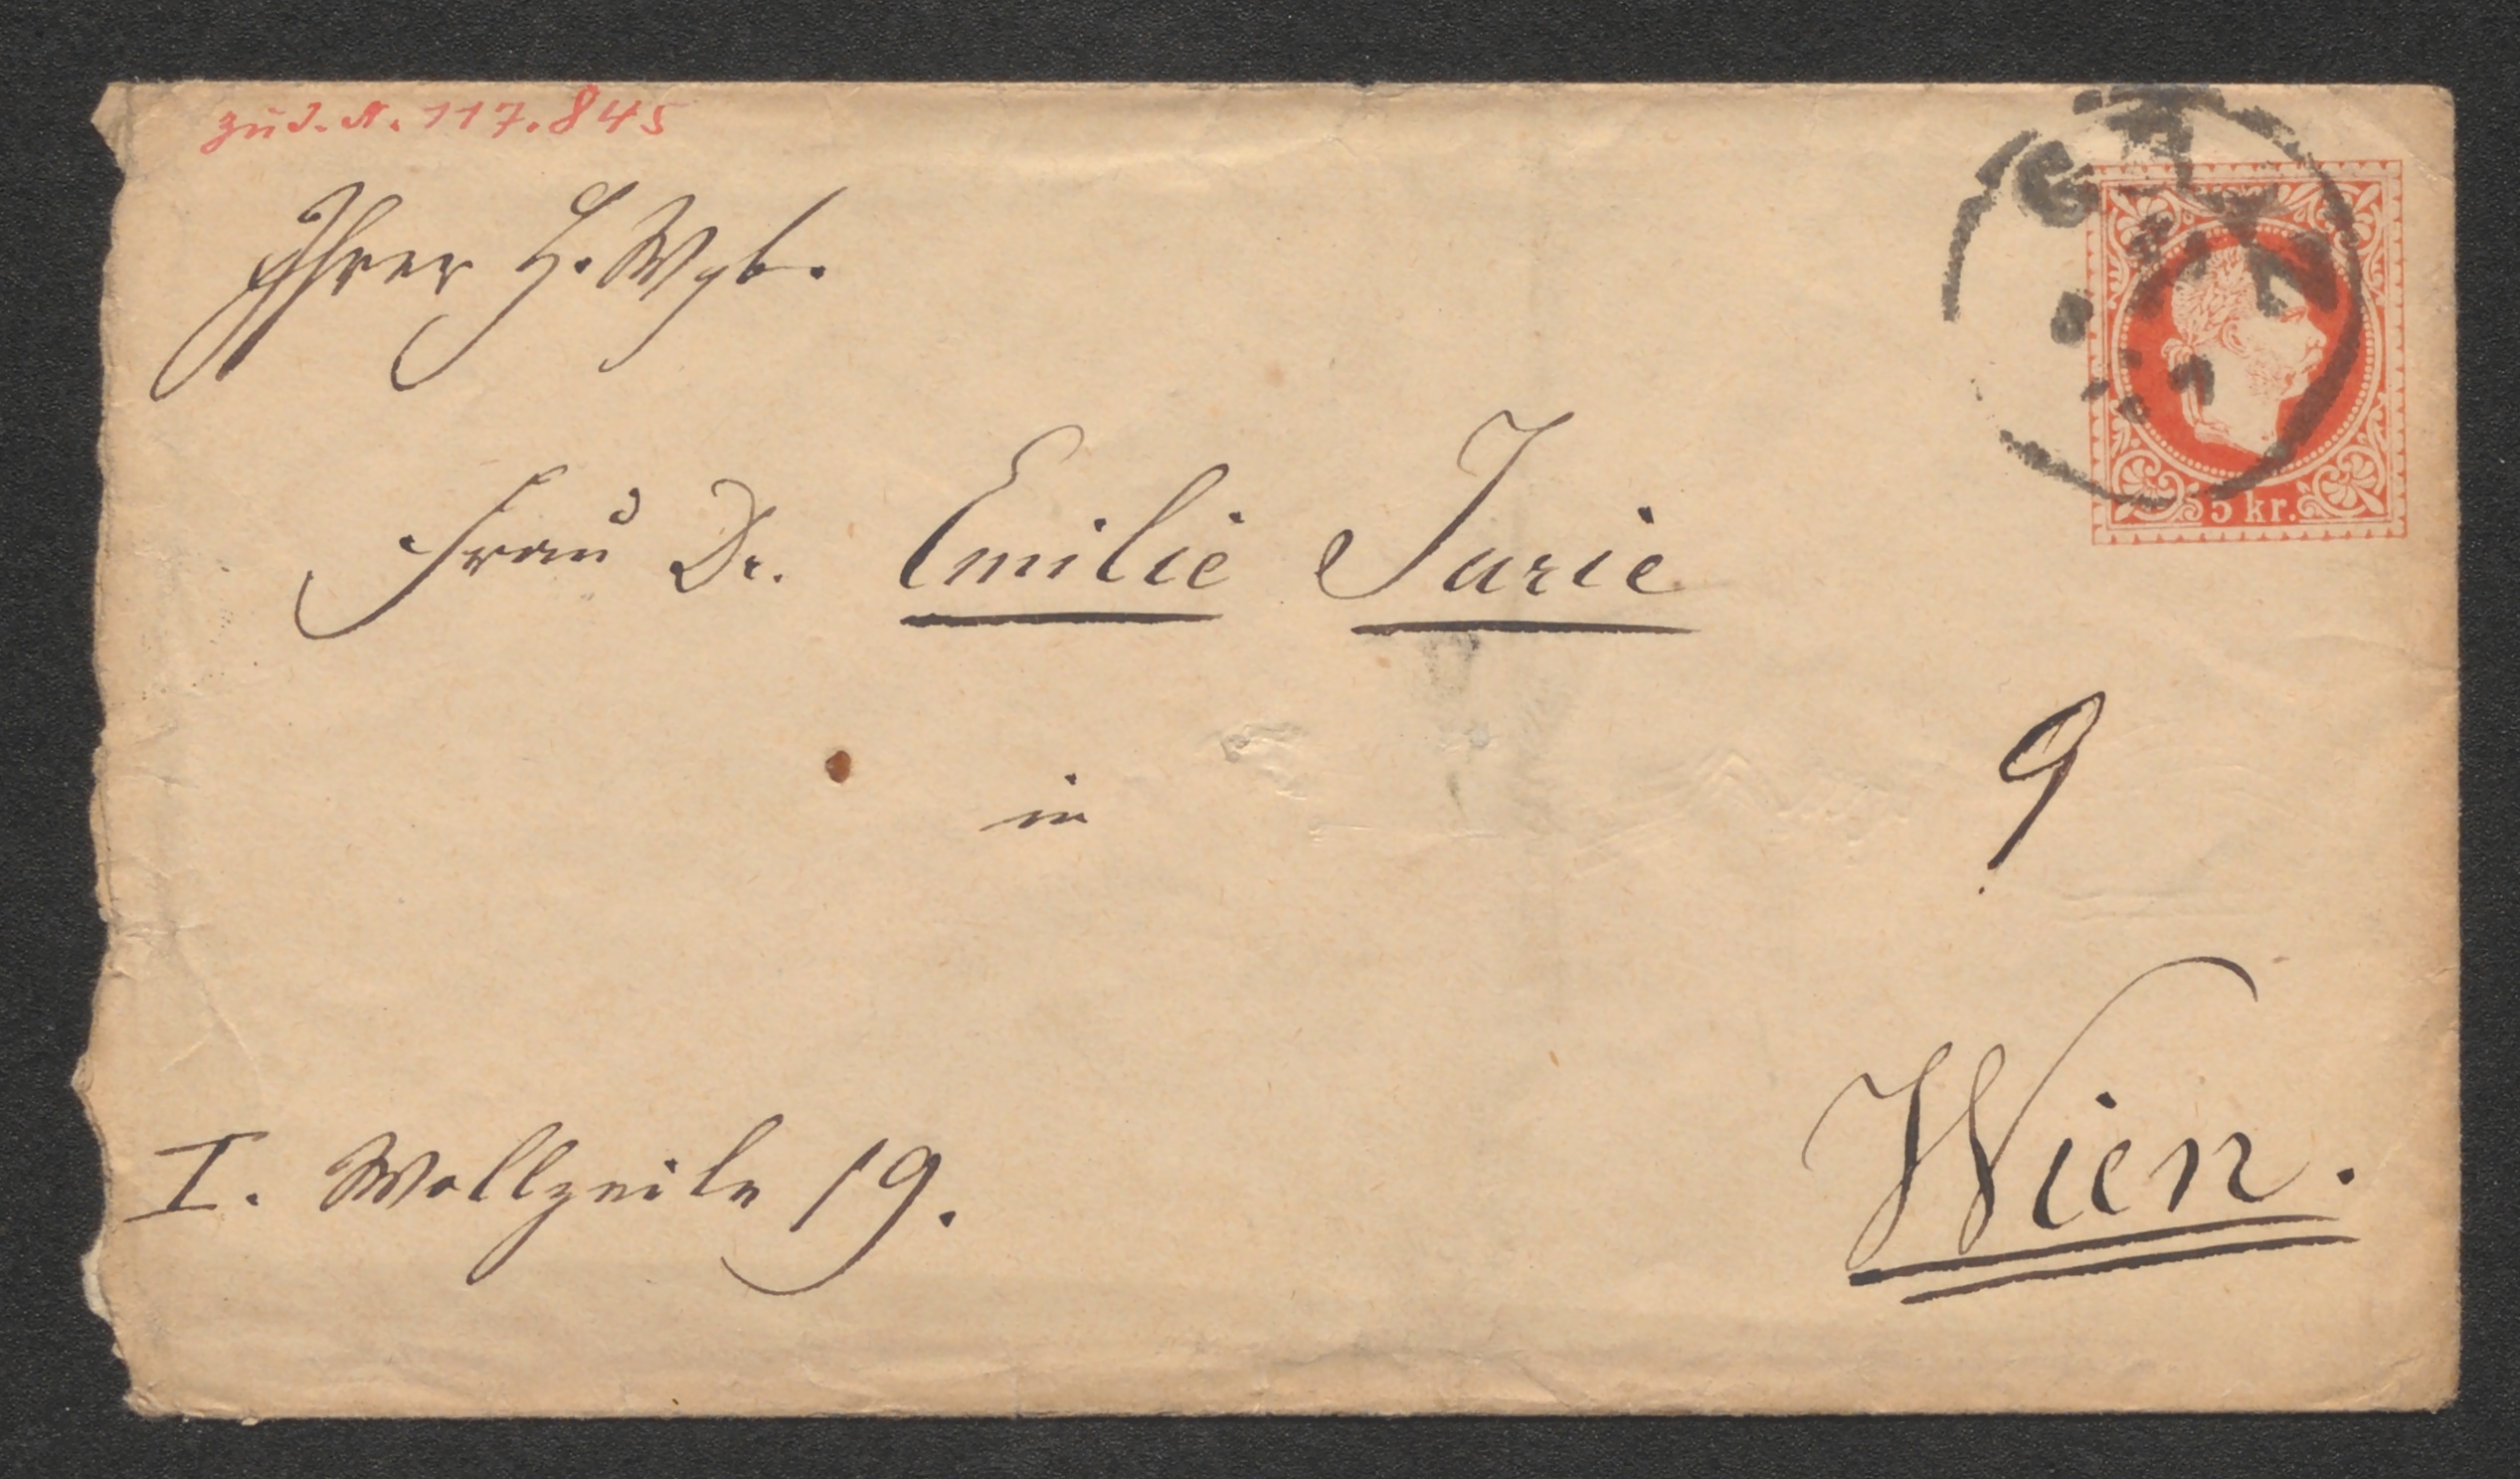 zu J. N. 117.845
Ihrer H. Wgb.
5 kr.
Frau Dr. Emilie Jurie
in
9
I. Wollzeile 19.
Wien.